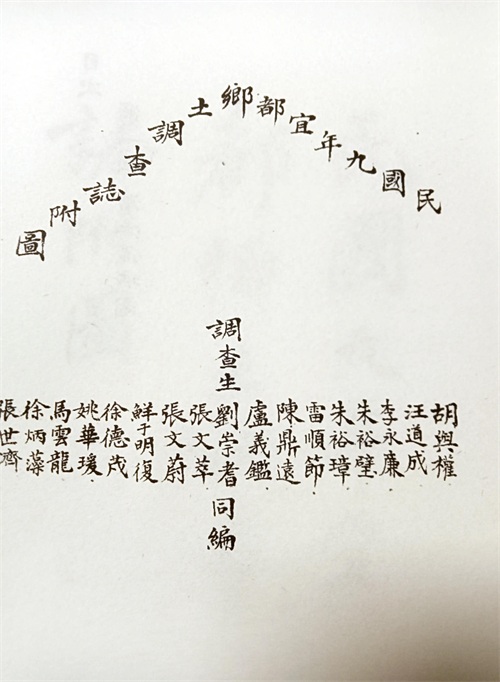 民國九年宜都鄉土調查誌附圖
調查生
胡與權
汪道成
李永廉
朱裕璧
朱裕璋
雷順節
陳鼎遠
盧義鑑
劉崇耆
張文萃
張文蔚
鮮于明復
徐德茂
姚華瑗
馬雲龍
徐炳藻
張世濟
同編